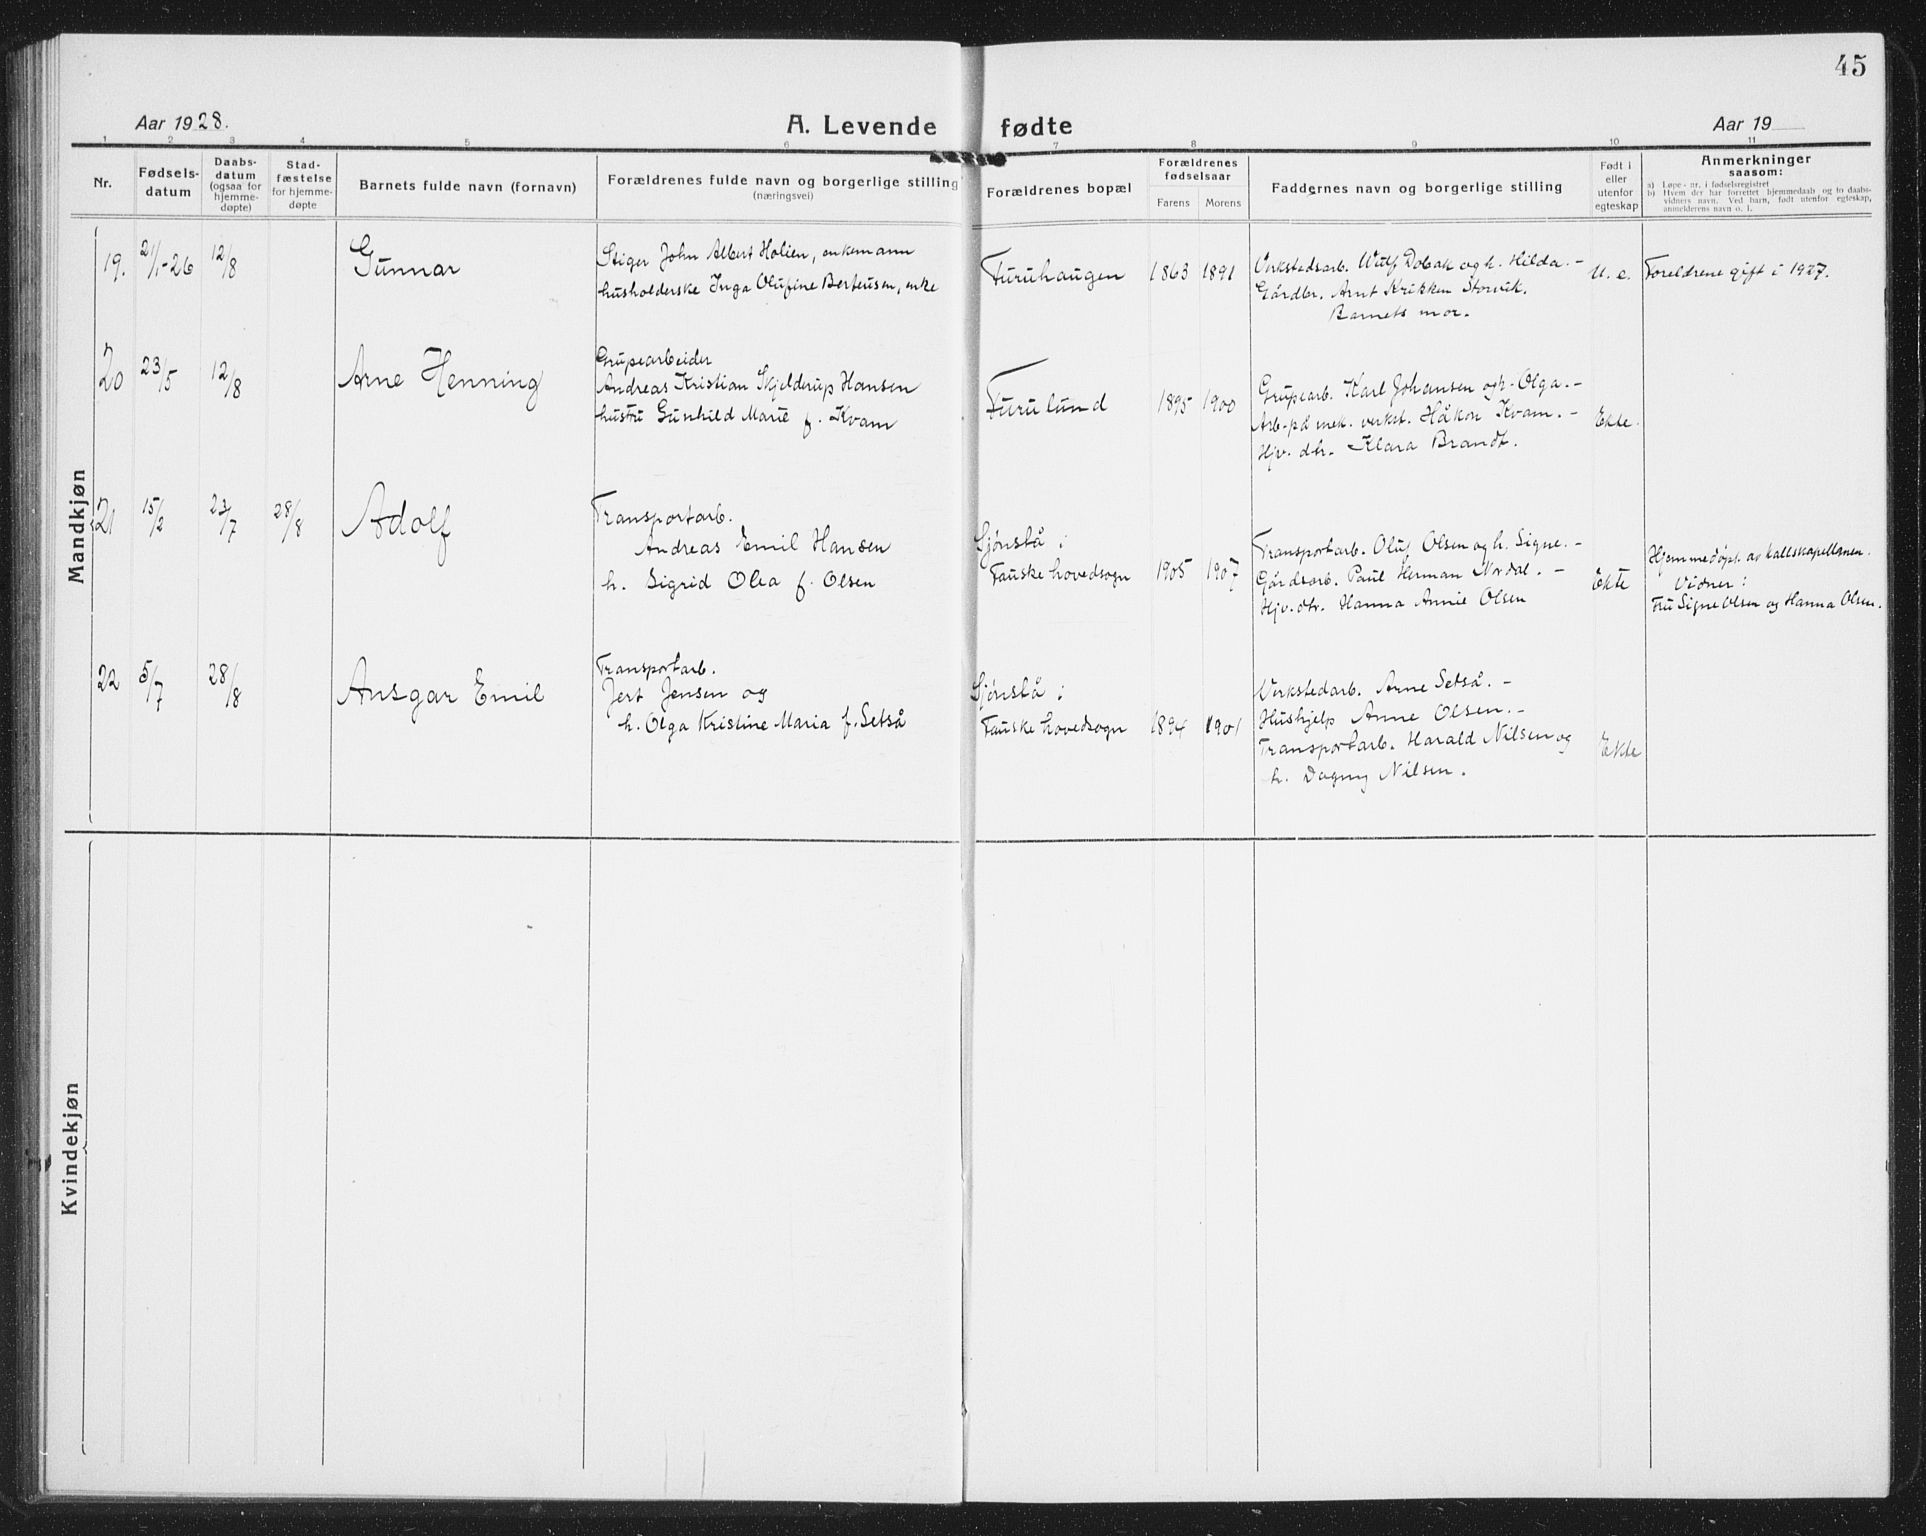 45
Aar 1928.
A. Levende fødte
Aar 19
1 2 3 4 5 6 7 8 9 10 11
Nr.
Fødsels-
datum
Daabs-
datum
(ogsaa for
hjemme-
døpte)
Stad-
fæstelse
for hjemme-
døpte
Barnets fulde navn (fornavn)
Forældrenes fulde navn og borgerlige stilling
(næringsvei)
Forældrenes bopæl
Forældrenes
fødselsaar
Farens
Morens
Faddernes navn og borgerlige stilling
Født i
eller
utenfor
egteskap
Anmerkninger
saasom:
a) Løpe-nr. i fødselsregistret
b) Hvem der har forrettet hjemmedaab og to daabs-
vidners navn. Ved barn, født utenfor egteskap,
anmelderens navn o. l.
Mandkjøn
19.
21/1-26
12/8
Gunnar
Stiger John Albert Holien, enkemann
husholderske Inga Olufine Berteusen, enke
Furuhaugen
1863
1891
Verkstedsarb. Wulf Dobak og h. Hilda. -
Gårdbr. Arnt Krikken Storvik.
Barnets mor.
U. e.
Foreldrene gift i 1927.
20
23/5
12/8
Arne Henning
Grupearbeider
Andreas Kristian Skjelderup Hansen
hustru Gunhild Marie f. Kvam
Furulund
1895
1900
Grupearb. Karl Johansen og h. Olga. -
Arb. på mek. verkst. Håkon Kvam. -
Hjv. dtr. Klara Brandt.
Ekte.
21
15/2
23/7
28/8
Adolf
Transportarb.
Andreas Emil Hansen
h. Sigrid Olea f. Olsen
Sjønstå i
Fauske hovedsogn
1905
1907
Transportarb. Oluf Olsen og h. Signe. -
Gårdsarb. Paul Herman Nordal. -
Hjv. dtr. Hanna Annie Olsen
Ekte
Hjemmedøpt av kallskapellanen.
Vidner:
Fru Signe Olsen og Hanna Olsen.
22
5/7
28/8
Ansgar Emil
Transportarb.
Jert Jensen og
h. Olga Kristine Maria f. Setså
Sjønstå i
Fauske hovedsogn
1894
1901
Verkstedarb. Arne Setså. -
Hushjelp Anne Olsen. -
Transportarb. Harald Nilsen og
h. Dagny Nilsen.
Ekte
Kvindekjøn